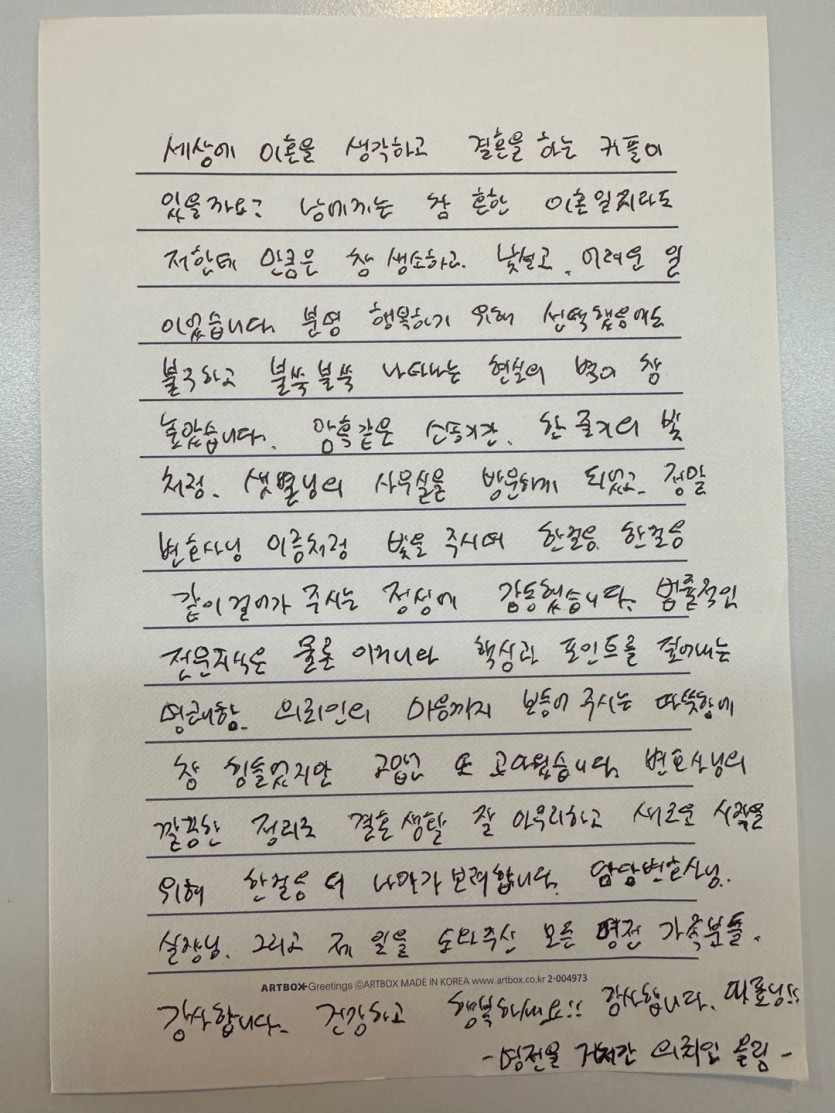 세상에 이혼을 생각하고 결혼을 하는 커플이
있을까요? 남에게는 참 흔한 이혼일지라도
저한테 만큼은 참 생소하고. 낯설고. 어려운 일
이었습니다. 분명 행복하기 위해 선택했음에도
불구하고 불쑥불쑥 나타나는 현실의 벽이 참
높았습니다. 암흑같은 소송기간. 한 줄기의 빛
처럼. 샛별님의 사무실을 방문하게 되었고. 정말
변호사님 이름처럼 빛을 주시며 한걸음. 한걸음
같이 걸어가 주시는 정성에 감동했습니다. 범출적인
전문지식은 물론 이거니와 핵심과 포인트를 짚어내는
명쾌함. 의뢰인의 마음까지 보듬어 주시는 따뜻함에
참 힘들었지만 고맙고 또 고마웠습니다. 변호사님의
깔끔한 정리로 결혼생활 잘 마무리하고 새로운 시작을
위해 한걸음 더 나아가보려합니다. 담당변호사님.
실장님. 그리고 제 일을 도와주신 모든 명전 가족분들.
ARTBOX Greetings ⓒARTBOX MADE IN KOREA www.artbox.co.kr 2-004973
감사합니다. 건강하고 행복하세요!! 감사합니다. 대표님!!
- 명전을 거쳐간 의뢰인 올림 -